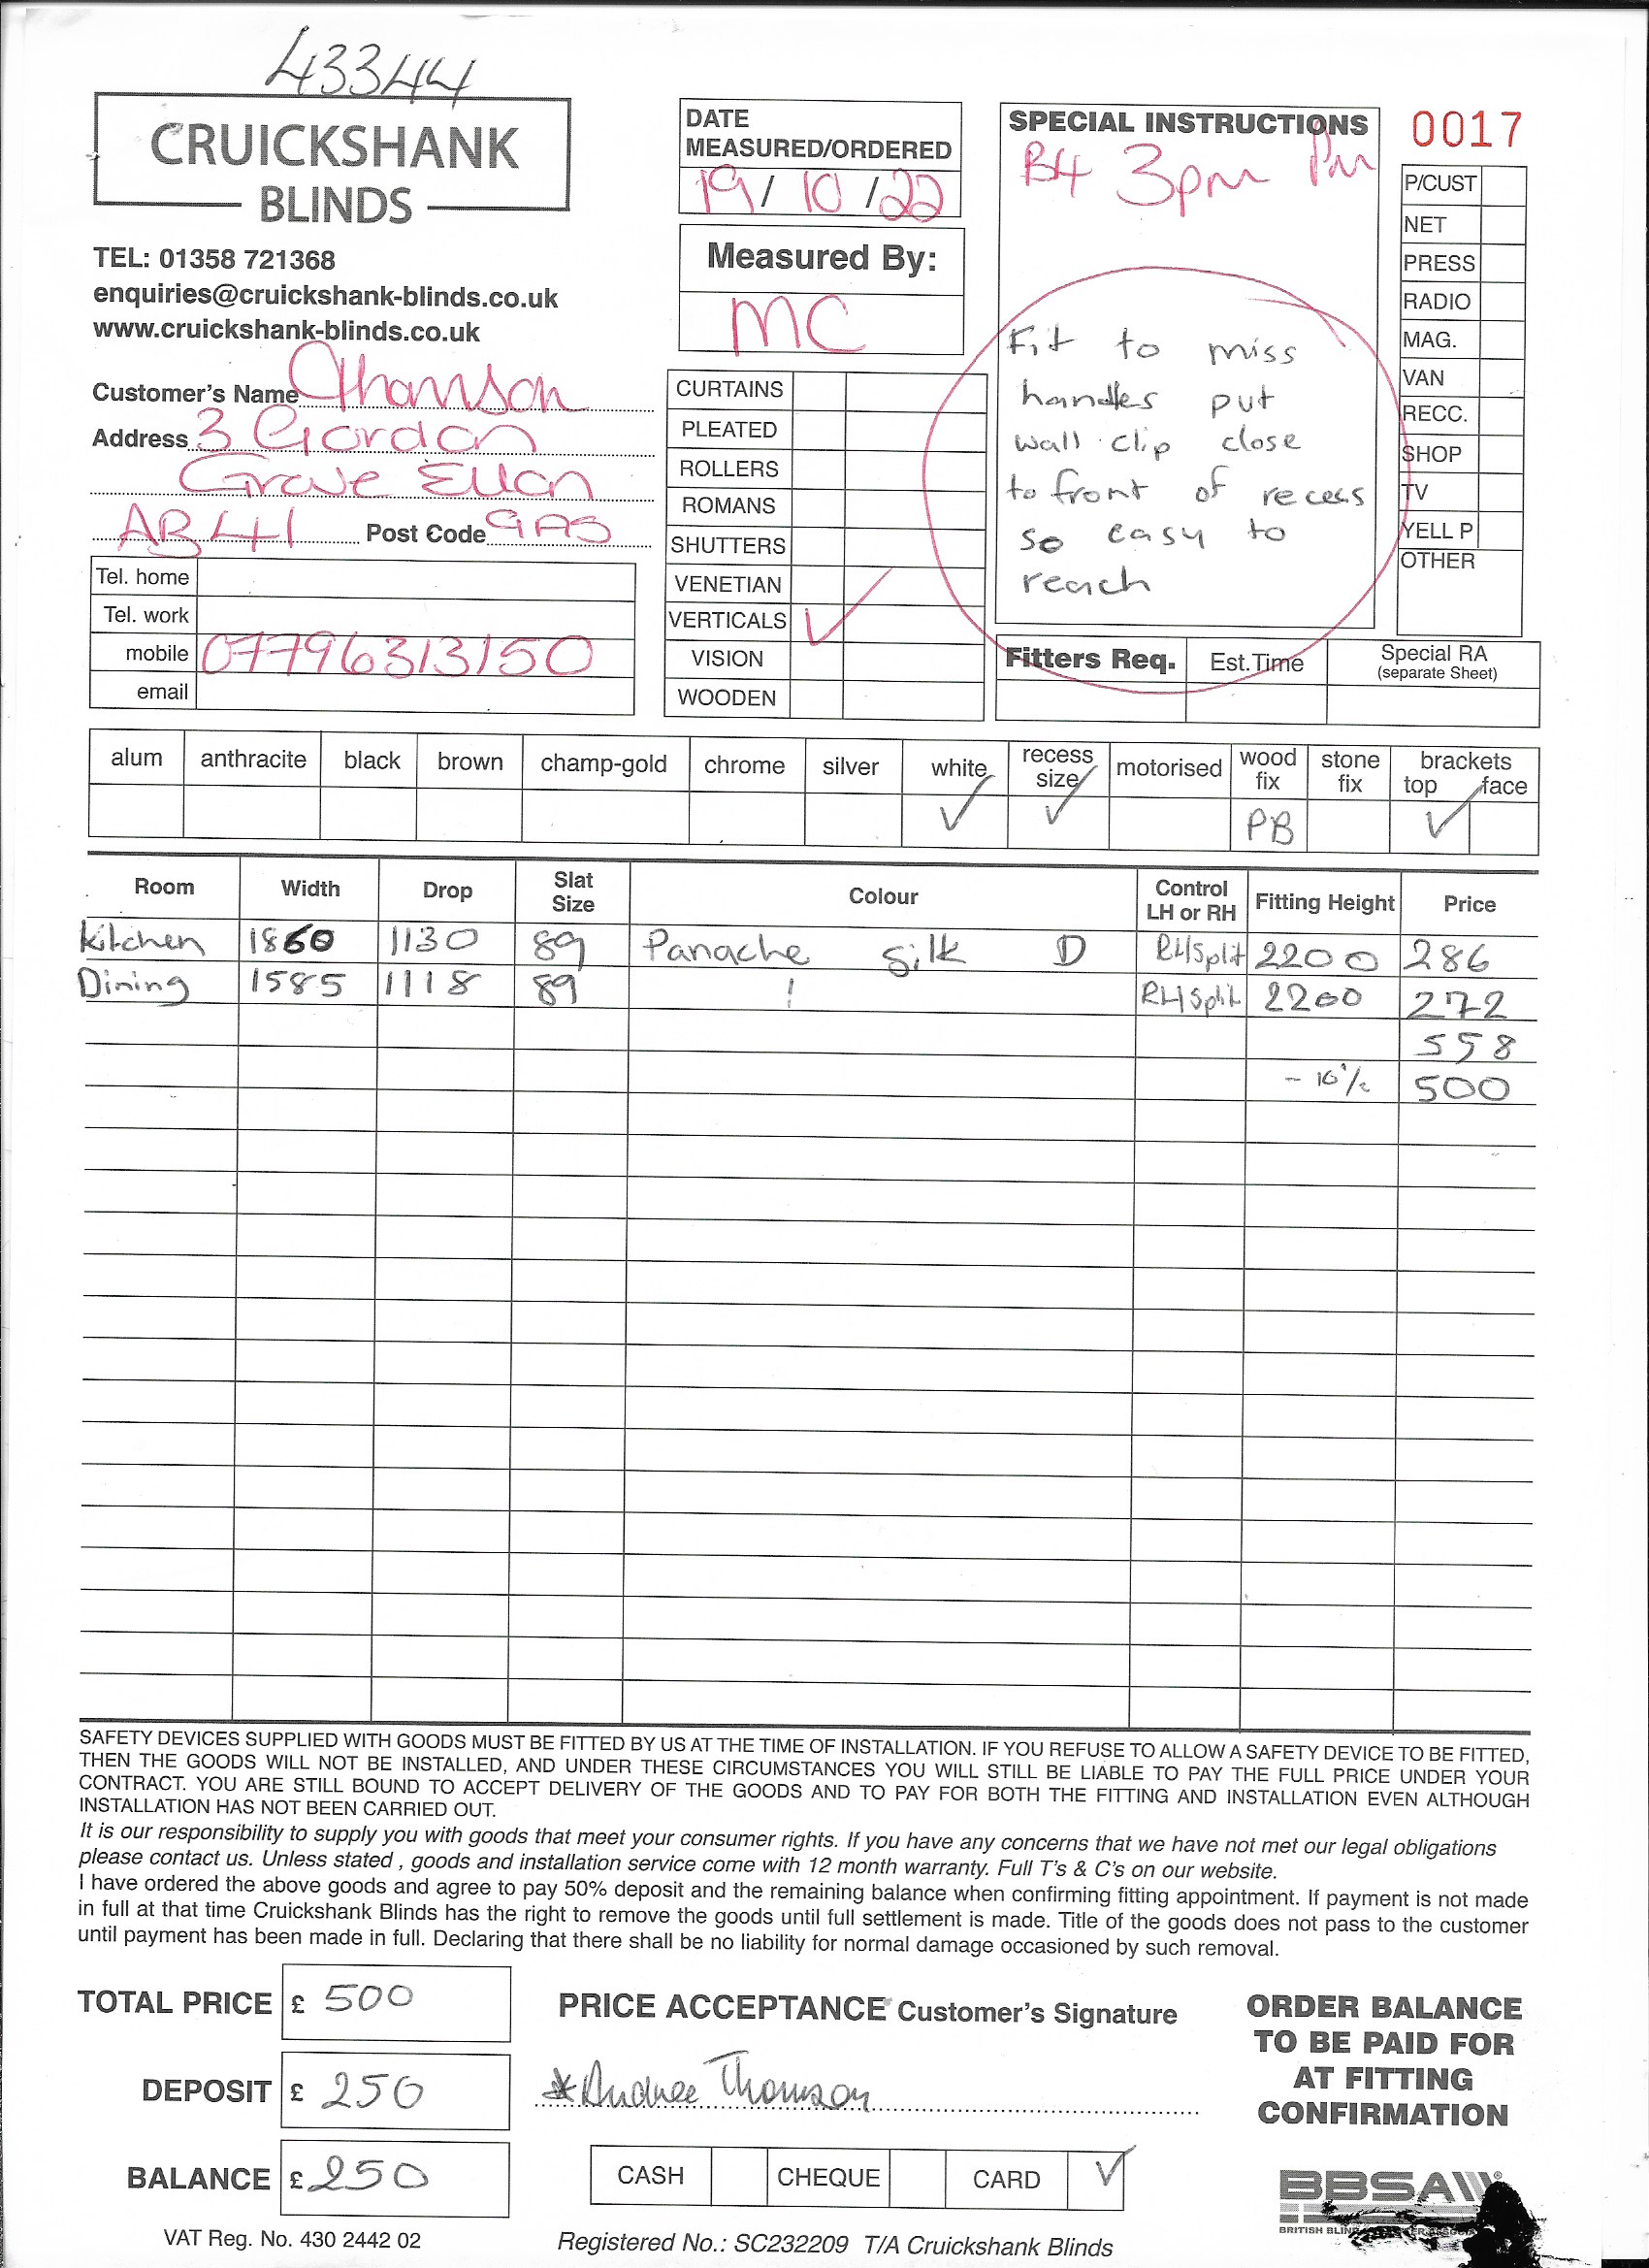 43344
CRUICKSHANK
BLINDS
TEL: 01358 721368
enquiries@cruickshank-blinds.co.uk
www.cruickshank-blinds.co.uk
Customer's Name Thomson
Address 3 Gordon
Grove Ellon
AB41 Post Code 9AS
Tel. home
Tel. work
mobile 07796313150
email
DATE
MEASURED/ORDERED
19/10/22
Measured By:
MC
CURTAINS
PLEATED
ROLLERS
ROMANS
SHUTTERS
VENETIAN
VERTICALS ✓
VISION
WOODEN
SPECIAL INSTRUCTIONS
B4 3pm Pm
Fit to miss
handles put
wall clip close
to front of recess
so easy to
reach
Fitters Req. Est.Time Special RA
(separate Sheet)
0017
P/CUST
NET
PRESS
RADIO
MAG.
VAN
RECC.
SHOP
TV
YELL P
OTHER
alum anthracite black brown champ-gold chrome silver white recess size motorised wood fix stone fix brackets top face
✓ ✓ PB ✓
Room Width Drop Slat Size Colour Control LH or RH Fitting Height Price
Kitchen 1860 1130 89 Panache Silk D RH Split 2200 286
Dining 1585 1118 89 ! RH Split 2200 272
558
- 10% 500
SAFETY DEVICES SUPPLIED WITH GOODS MUST BE FITTED BY US AT THE TIME OF INSTALLATION. IF YOU REFUSE TO ALLOW A SAFETY DEVICE TO BE FITTED,
THEN THE GOODS WILL NOT BE INSTALLED, AND UNDER THESE CIRCUMSTANCES YOU WILL STILL BE LIABLE TO PAY THE FULL PRICE UNDER YOUR
CONTRACT. YOU ARE STILL BOUND TO ACCEPT DELIVERY OF THE GOODS AND TO PAY FOR BOTH THE FITTING AND INSTALLATION EVEN ALTHOUGH
INSTALLATION HAS NOT BEEN CARRIED OUT.
It is our responsibility to supply you with goods that meet your consumer rights. If you have any concerns that we have not met our legal obligations
please contact us. Unless stated , goods and installation service come with 12 month warranty. Full T's & C's on our website.
I have ordered the above goods and agree to pay 50% deposit and the remaining balance when confirming fitting appointment. If payment is not made
in full at that time Cruickshank Blinds has the right to remove the goods until full settlement is made. Title of the goods does not pass to the customer
until payment has been made in full. Declaring that there shall be no liability for normal damage occasioned by such removal.
TOTAL PRICE £ 500
DEPOSIT £ 250
BALANCE £ 250
VAT Reg. No. 430 2442 02
PRICE ACCEPTANCE Customer's Signature
Andree Thomson
CASH CHEQUE CARD ✓
Registered No.: SC232209 T/A Cruickshank Blinds
ORDER BALANCE
TO BE PAID FOR
AT FITTING
CONFIRMATION
BBSA
BRITISH